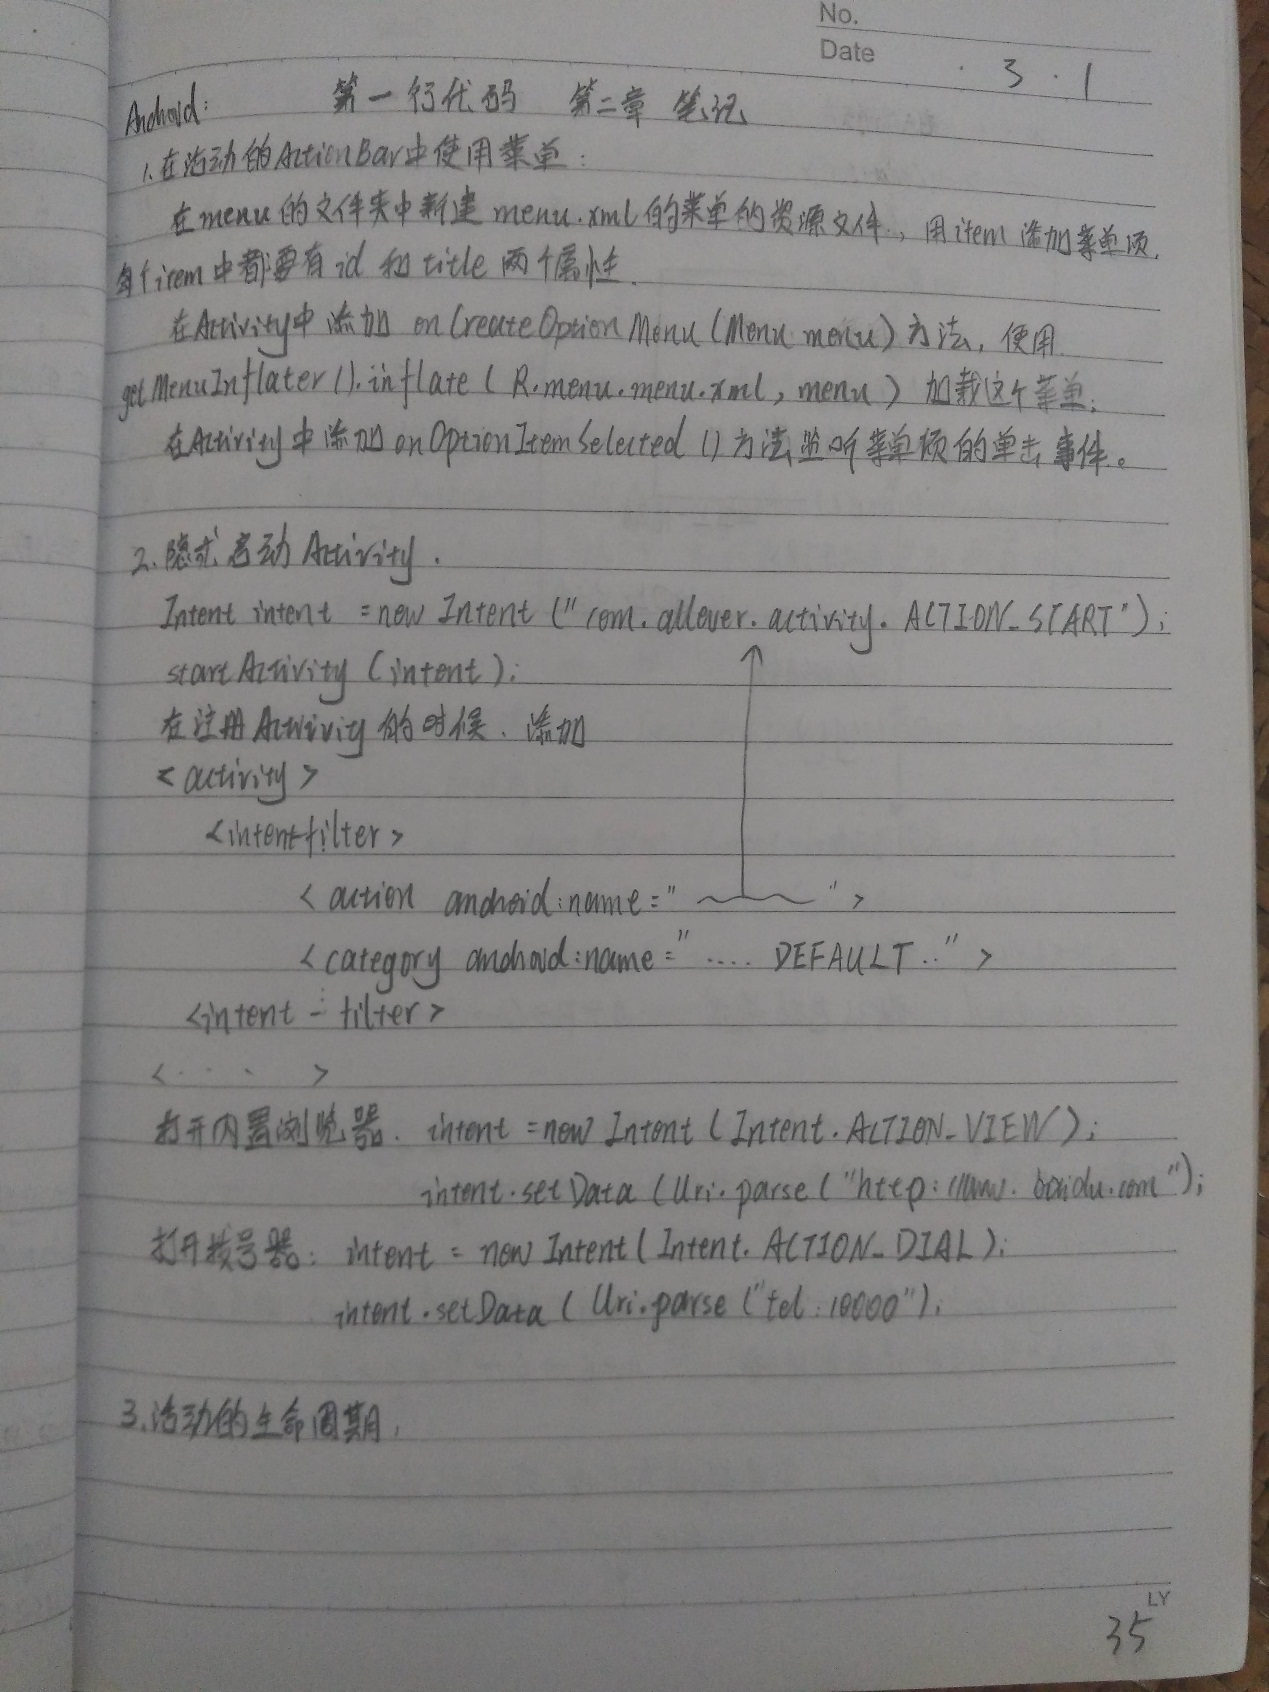 No.
Date · 3 · 1
Android: 第一行代码 第二章 笔记
1.在活动的ActionBar中使用菜单:
在menu的文件夹中新建menu.xml的菜单的资源文件,用item添加菜单项,
每个item中都要有id和title两个属性.
在Activity中添加 onCreateOptionMenu(Menu menu)方法,使用
getMenuInflater().inflate(R.menu.menu.xml, menu)加载这个菜单;
在Activity中添加onOptionItemSelected()方法监听菜单项的单击事件。
2.隐式启动Activity.
Intent intent = new Intent("com.allover.activity.ACTION_START");
startActivity(intent);
在注册Activity的时候、添加
<activity>
<intent-filter>
<action android:name=" ">
<category android:name=".... DEFAULT..">
<intent-filter>
<... >
打开内置浏览器. intent = new Intent(Intent.ACTION_VIEW);
intent.setData(Uri.parse("http://www.baidu.com");
打开拨号器: intent = new Intent(Intent.ACTION_DIAL);
intent.setData(Uri.parse("tel:10000");
3.活动的生命周期,
LY
35